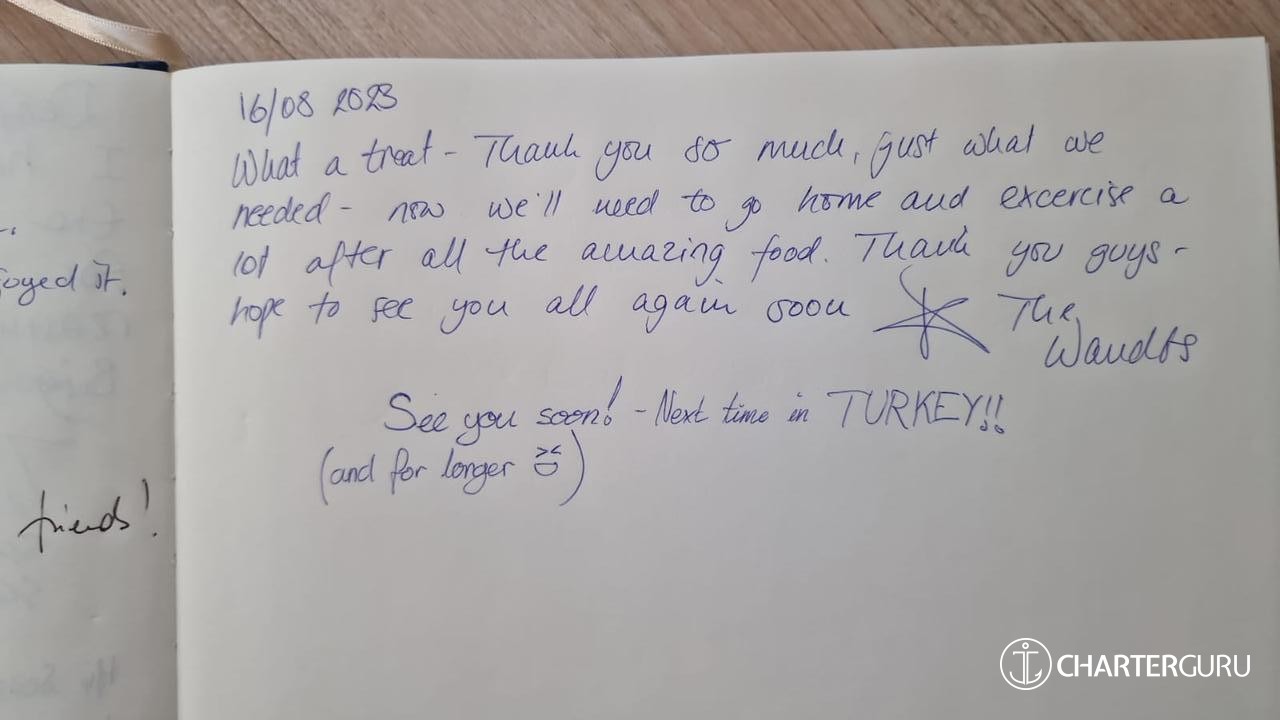 16/08 2023
What a treat - Thank you so much, just what we
needed - now we'll need to go home and excercise a
lot after all the amazing food. Thank you guys -
hope to see you all again soon The
Wandts
See you soon! - Next time in TURKEY!!
(and for longer )
joyed it.
friends!
CHARTERGURU